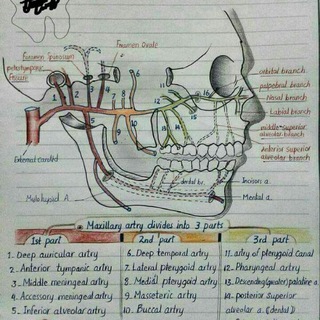 Foramen Spinosum
Foramen Ovale
petrotympanic
fissure
orbital branch
palpebral branch
Nasal branch
Labial branch
middle superior
alveolar branch
Anterior Superior
alveolar branch
External carotid
Mylohyoid A.
dental br.
Incisors a.
Mental a.
Maxillary artry divides into 3 parts
1st part
2nd part
3rd part
1. Deep auricular artry
6. Deep temporal artry
11. artry of pterygoid Canal
2. Anterior tympanic artry
7. Lateral pterygoid artry
12. Pharyngeal artry
3. Middle meningeal artry
8. Medial pterygoid artry
13. Descending(greater)palatine a.
4. Accessory meningeal artry
9. Masseteric artry
14. posterior Superior
5. Inferior alveolar artry
10. Buccal artry
alveolar a. (dental)